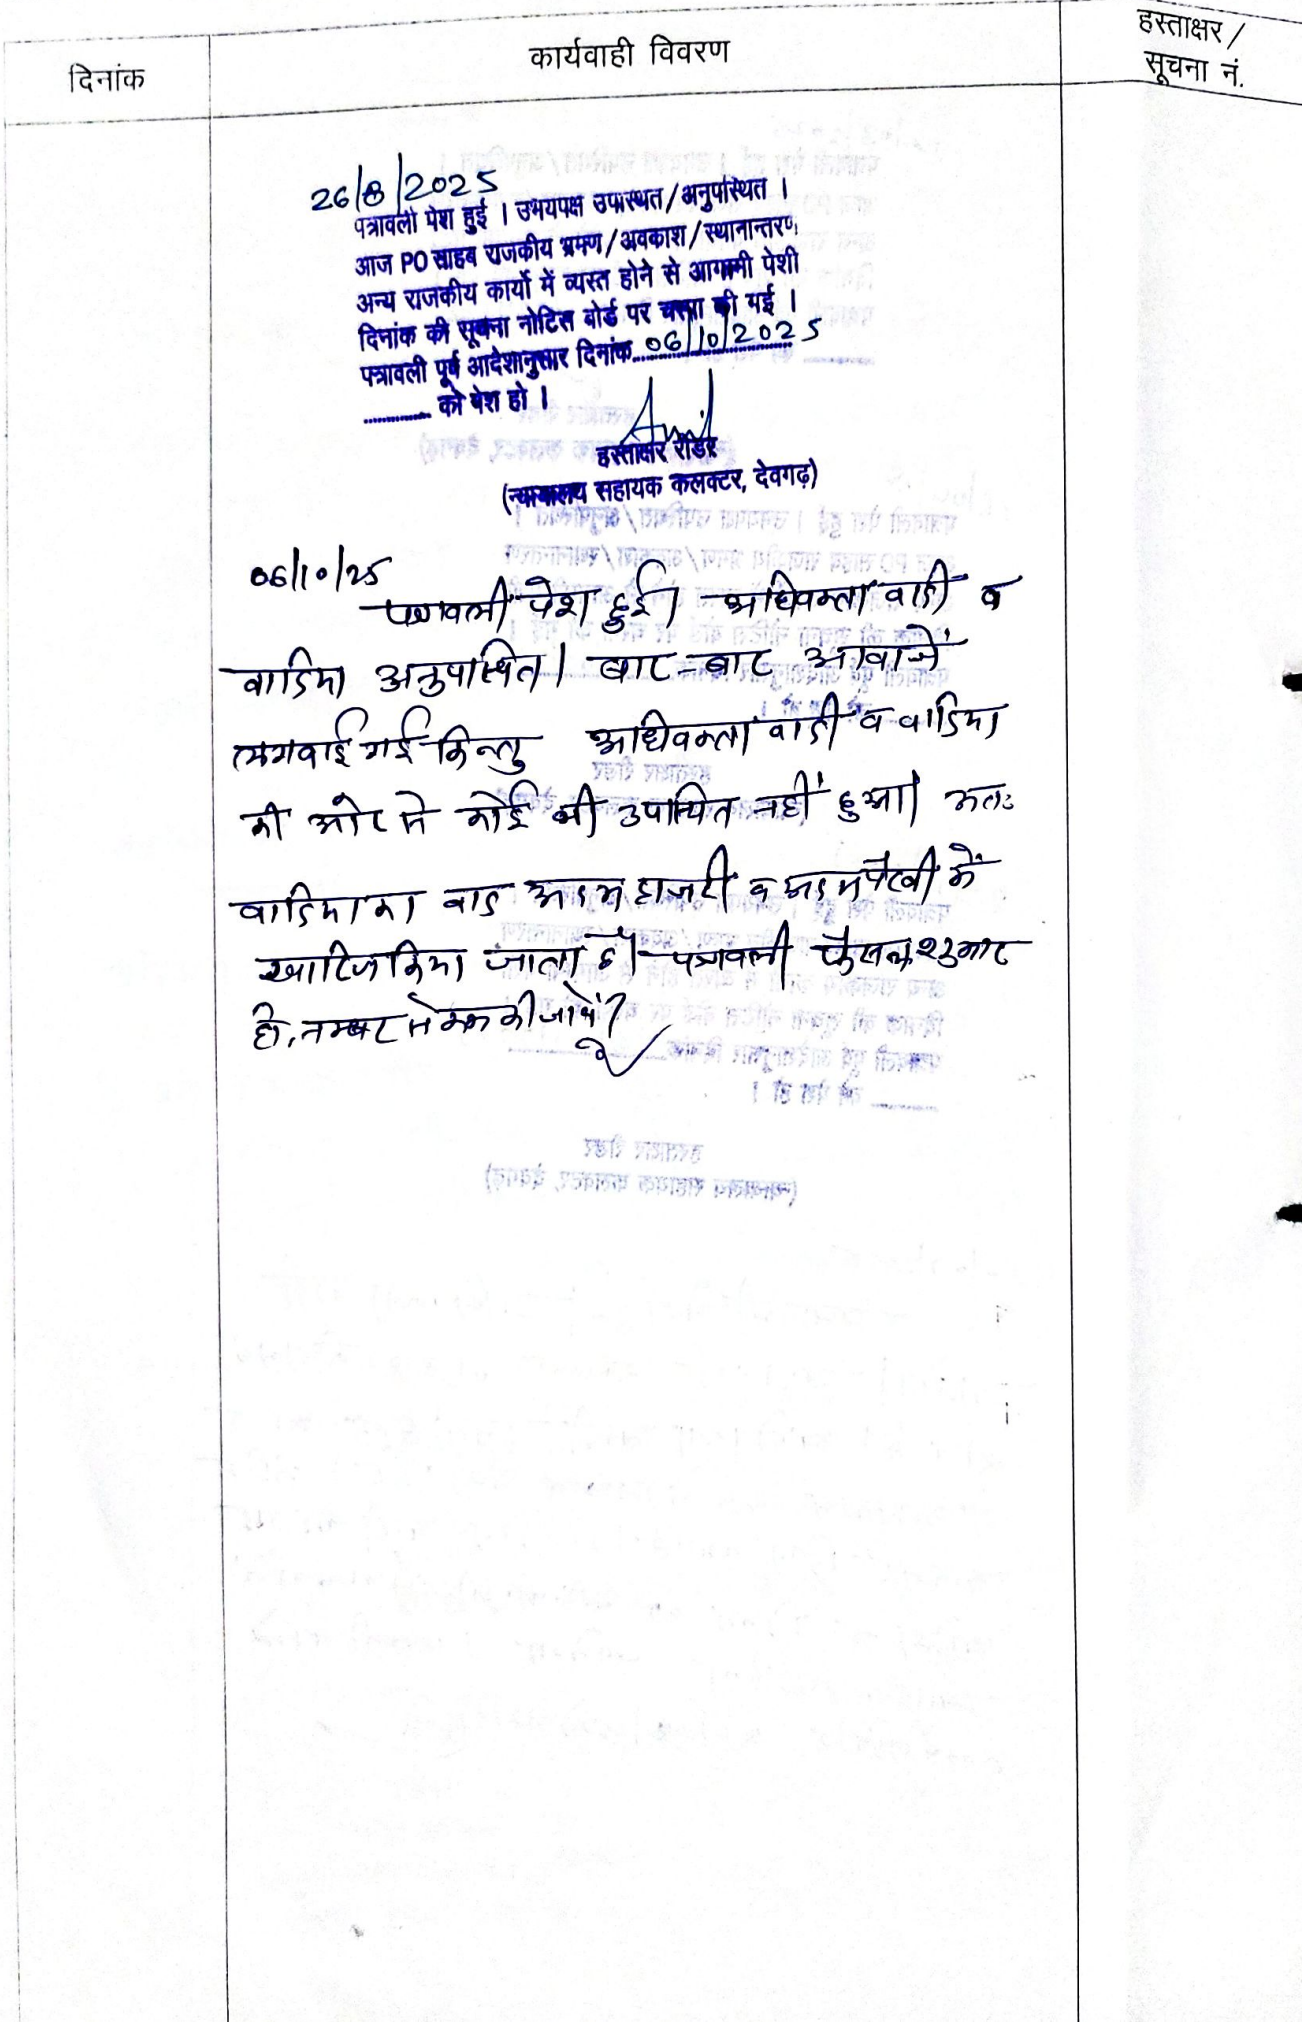 दिनांक
कार्यवाही विवरण
हस्ताक्षर /
सूचना नं.
26/8/2025
पत्रावली पेश हुई । उभयपक्ष उपस्थित/अनुपस्थित ।
आज PO साहब राजकीय भ्रमण/अवकाश/स्थानान्तरण
अन्य राजकीय कार्यो में व्यस्त होने से आगामी पेशी
दिनांक की सूचना नोटिस बोर्ड पर चस्पा की गई ।
पत्रावली पूर्व आदेशानुसार दिनांक 06/10/2025
को पेश हो ।
हस्ताक्षर रीडर
(न्यायालय सहायक कलक्टर, देवगढ़)
06/10/25
पत्रावली पेश हुई। अधिवक्ता वादी व
वादिया अनुपस्थित। बार-बार आवाजें
लगवाई गई किन्तु अधिवक्ता वादी व वादिया
की ओर से कोई भी उपस्थित नहीं हुआ। अतः
वादिया का वाद अदम हाजरी व अदम पैरवी में
खारिज किया जाता है। पत्रावली फैसल शुमार
हो, नम्बर से कम की जावें।